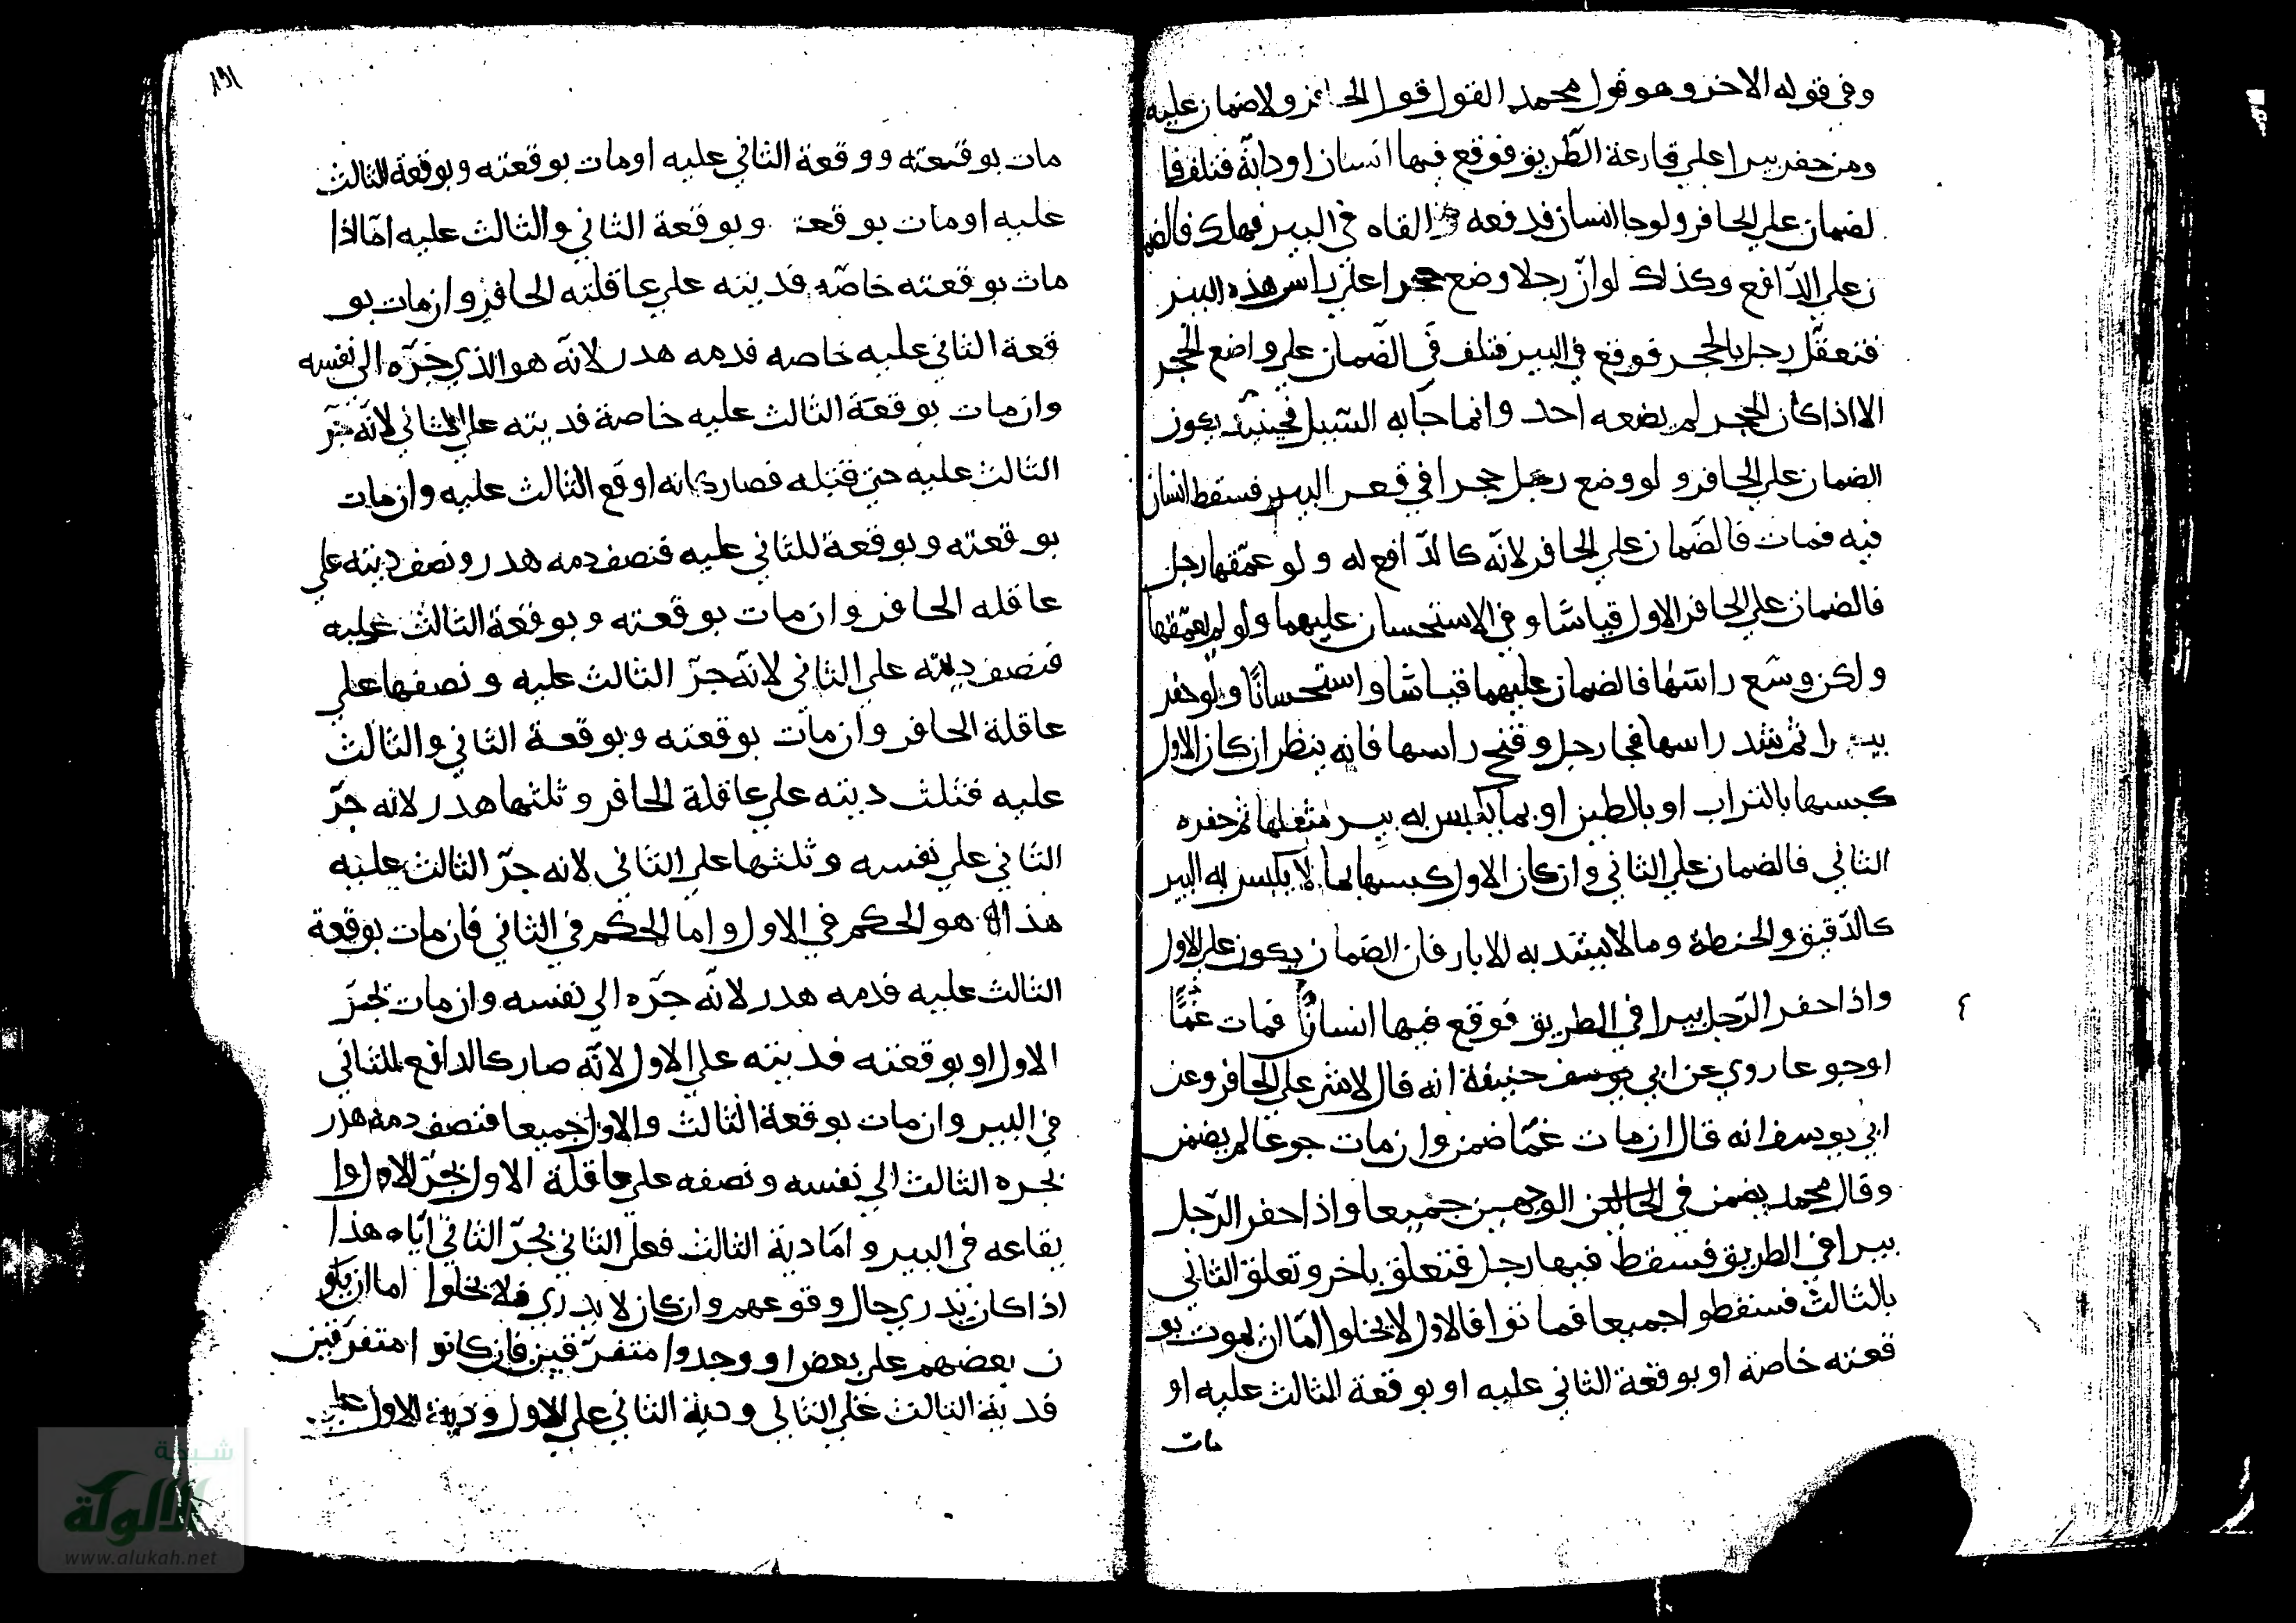 وفي قوله الاخر وهو قول محمد القول قول الحافر ولا ضمان عليه
ومن حفر بيرا علي قارعة الطريق فوقع فيها انسان او دابة فتلف فا
لضمان علي الحافر ولو جا انسان فدفعه القاه في البير فهلك فالضما
ن علي الدافع وكذلك لو ان رجلا وضع حجرا علي راس هذه البير
فتعقل رجل بالحجر فوقع في البير فتلف في الضمان علي واضع الحجر
الا اذا كان الحجر لم يضعه احد وانما جا به السيل فحينئذ يكون
الضمان علي الحافر ولو وضع رجل حجرا في قعر البير فسقط انسان
فيه فمات فالضمان علي الحافر لانه كالدافع له ولو عمقها رجل
فالضمان علي الحافر الاول قياسا وفي الاستحسان عليهما ولو لم يعمقها
ولكن وسع راسها فالضمان عليهما قياسا واستحسانا ولو حفر
بيرا ثم سد راسها فجا رجل وفتح راسها فانه ينظر ان كان الاول
كبسها بالتراب او بالطين او بما يكبس به بير مثلها ثم حفره
الثاني فالضمان علي الثاني وان كان الاول كبسها بما لا يكبس به البير
كالدقيق والحنطة وما لا يسد به الابار فان الضمان يكون علي الاول
واذا حفر الرجل بيرا في الطريق فوقع فيها انسانا فمات غما
او جوعا روي عن ابي يوسف حنيفة انه قال لا شي علي الحافر وعن
ابي يوسف انه قال ان مات غما ضمن وان مات جوعا لم يضمن
وقال محمد يضمن في الوجهين جميعا واذا حفر الرجل
بيرا في الطريق فسقط فيها رجل فتعلق باخر وتعلق الثاني
بالثالث فسقطوا جميعا فماتوا فالاول لا يخلوا اما ان يموت بو
قعته خاصة او بوقعة الثاني عليه او بوقعة الثالث عليه او
مات
١٩١
مات بوقعته ووقعة الثاني عليه او مات بوقعته وبوقعة الثالث
عليه او مات بوقعة وبوقعة الثاني والثالث عليه اما اذا
مات بوقعته خاصة فديته علي عاقلته الحافر وان مات بو
قعة الثاني عليه خاصه فدمه هدر لانه هو الذي جره الي نفسه
وان مات بوقعة الثالث عليه خاصة فديته علي الثاني لانه جر
الثالث عليه حتي قتله فصار كانه اوقع الثالث عليه وان مات
بوقعته وبوقعة للثاني عليه فنصف دمه هدر ونصف ديته علي
عاقله الحافر وان مات بوقعته وبوقعة الثالث عليه
فنصف ديته علي الثاني لانه جر الثالث عليه ونصفها علي
عاقلة الحافر وان مات بوقعته وبوقعة الثاني والثالث
عليه فثلث ديته علي عاقلة الحافر وثلثها هدر لانه جر
الثاني علي نفسه وثلثها علي الثاني لانه جر الثالث عليه
هذا هو الحكم في الاول واما الحكم في الثاني فان مات بوقعة
الثالث عليه فدمه هدر لانه جره الي نفسه وان مات بجر
الاول او بوقعته فديته علي الاول لانه صار كالدافع للثاني
في البير وان مات بوقعة الثالث والاول جميعا فنصف دمه هدر
بجره الثالث الي نفسه ونصفه علي عاقلة الاول بجر الاول وا
يقاعه في البير واما دية الثالث فعلي الثاني بجر الثاني اياه هذا
اذا كان يدري حال وقوعهم وان كان لا يدري فلا يخلوا اما ان يكو
ن بعضهم علي بعض او وجدوا متفرقين فان كانوا متفرقين
فدية الثالث علي الثاني ودية الثاني علي الاول ودية الاول علي